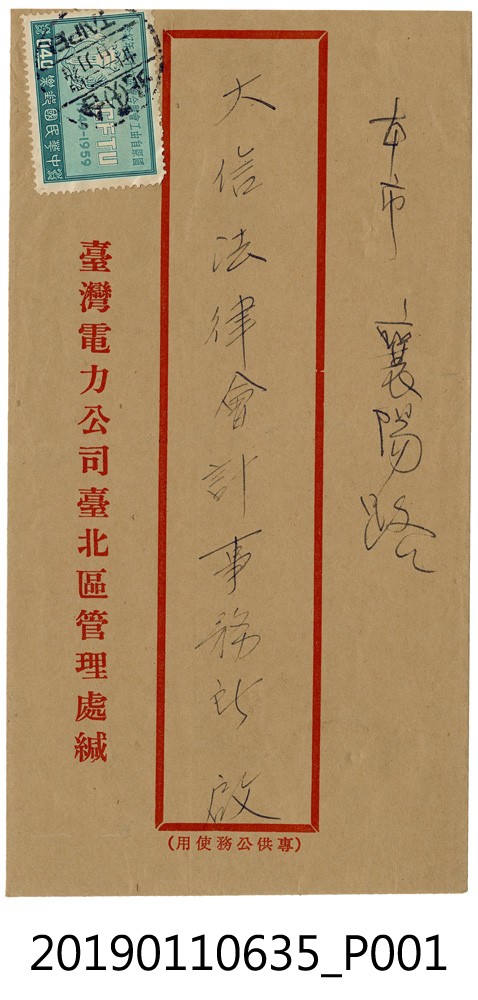 本市 襄陽路
大信法律會計事務所 啟
(專供公務使用)
臺灣電力公司臺北區管理處緘
中華民國郵票
CFTU
-1959
TAIPEI
20190110635_P001